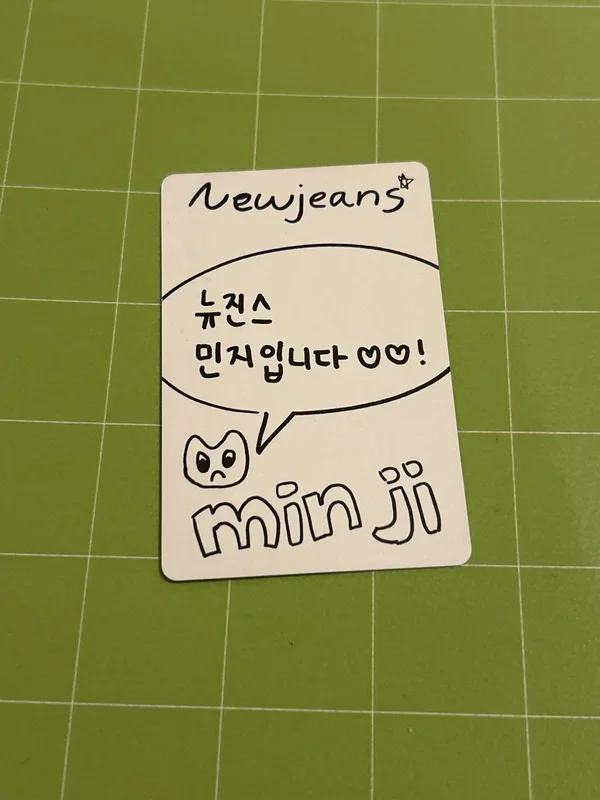 Newjeans
뉴진스
민지입니다 ♡♡!
min ji